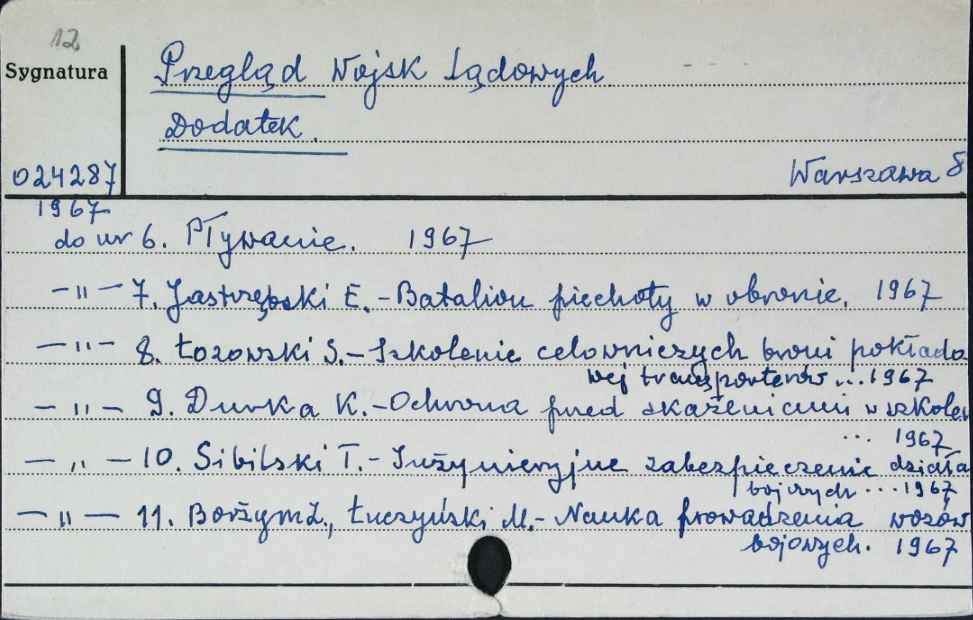 12
Sygnatura
Przegląd Wojsk Lądowych
Dodatek.
024287
Warszawa 8
1967
do nr 6. Pływanie. 1967
— " — 7. Jastrzębski E. - Batalion piechoty w obronie. 1967
— " — 8. Łozowski S. - Szkolenie celowniczych broni pokłado
wej transporterów ... 1967
— " — 9. Durka K. - Ochrona przed skażeniami w szkole
... 1967
— " — 10. Sibilski T. - Inżynieryjne zabezpieczenie działa
bojowych ... 1967
— " — 11. Borzym Z., Łuczyński M. - Nauka prowadzenia wozów
bojowych. 1967